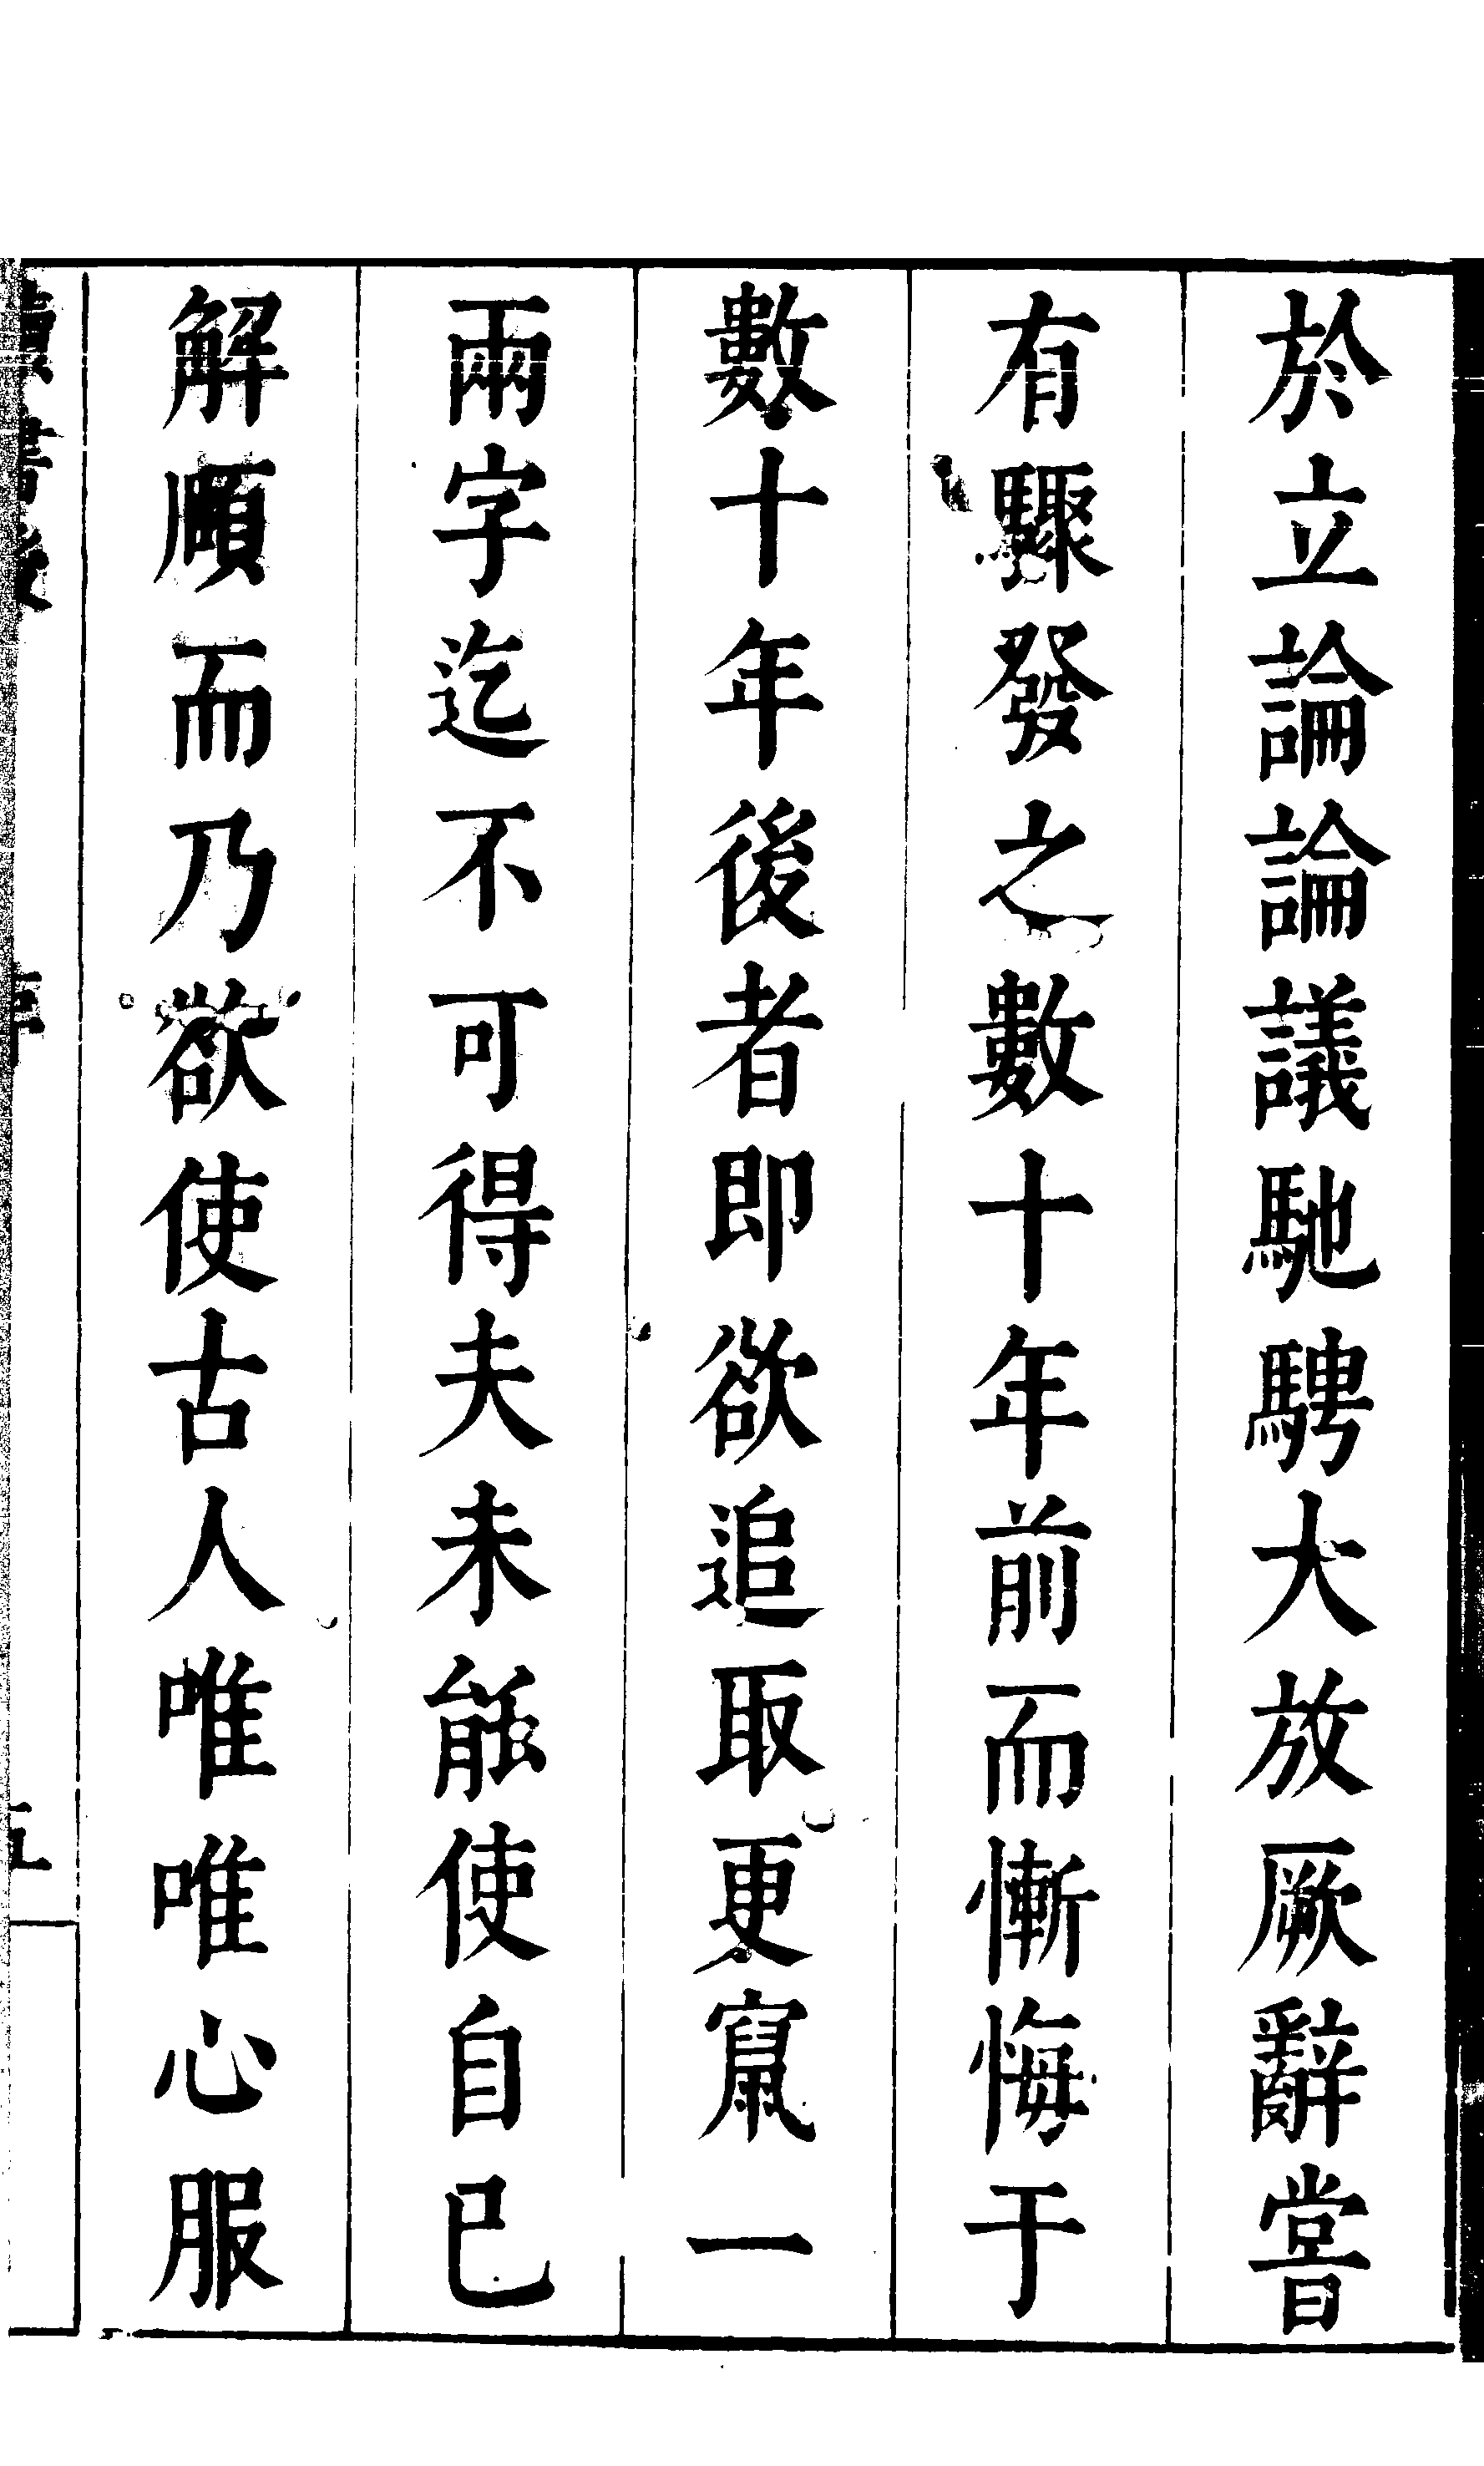 於立論論議馳騁大放厥辭嘗
有驟發之數十年前而慚悔于
數十年後者即欲追取更竄一
兩字迄不可得夫未能使自已
解頤而乃欲使古人唯唯心服
讀書後
序
五